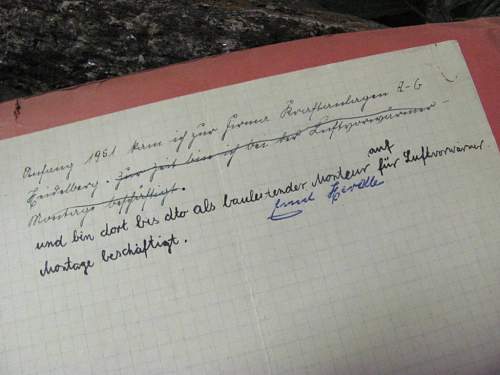 Anfang 1961 kam ich zur Firma Kraftanlagen A-G
Heidelberg. Zur Zeit bin ich bei der Luftvorwärmer-
Montage beschäftigt.
und bin dort bis dto als bauleitender Monteur auf für Luftvorwärmer
Montage beschäftigt.
Ernst